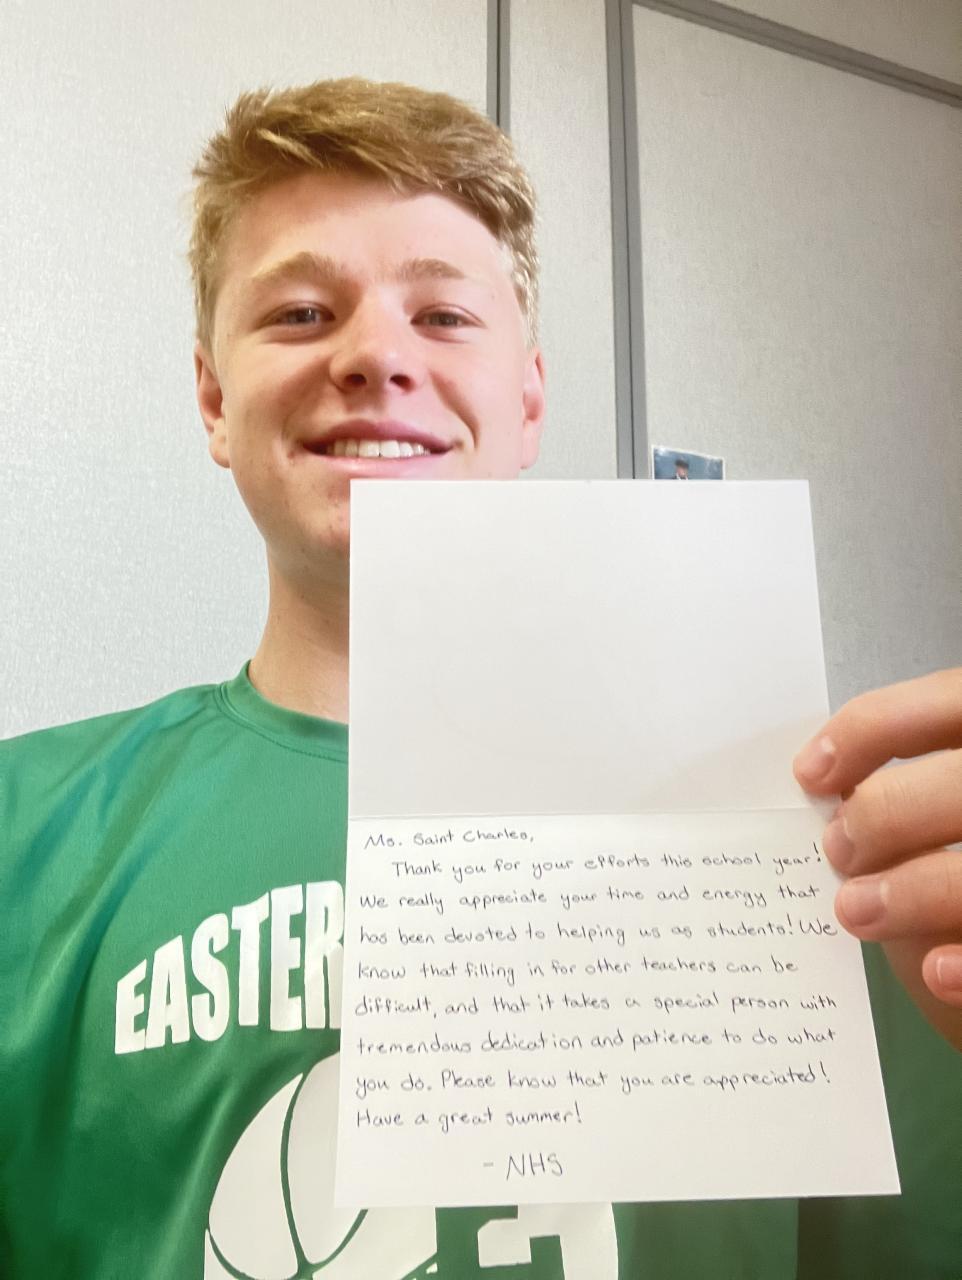 Ms. Saint Charles,
Thank you for your efforts this school year!
We really appreciate your time and energy that
has been devoted to helping us as students! We
know that filling in for other teachers can be
difficult, and that it takes a special person with
tremendous dedication and patience to do what
you do. Please know that you are appreciated!
Have a great summer!
- NHS
EASTER